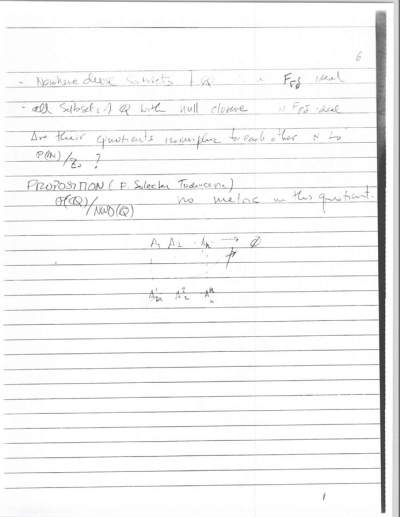 6
- Nowhere dense subsets of Q is Fσδ ideal
- all subsets of Q with null closure is Fσδ ideal
Are their quotients isomorphic to each other or to
P(N)/Z₀ ?
PROPOSITION (F. Selector Todorcevic)
P(Q)/NWD(Q) no metric in this quotient.
A₁ A₂ Aₙ → ∅
A¹ A² Aⁿ
1